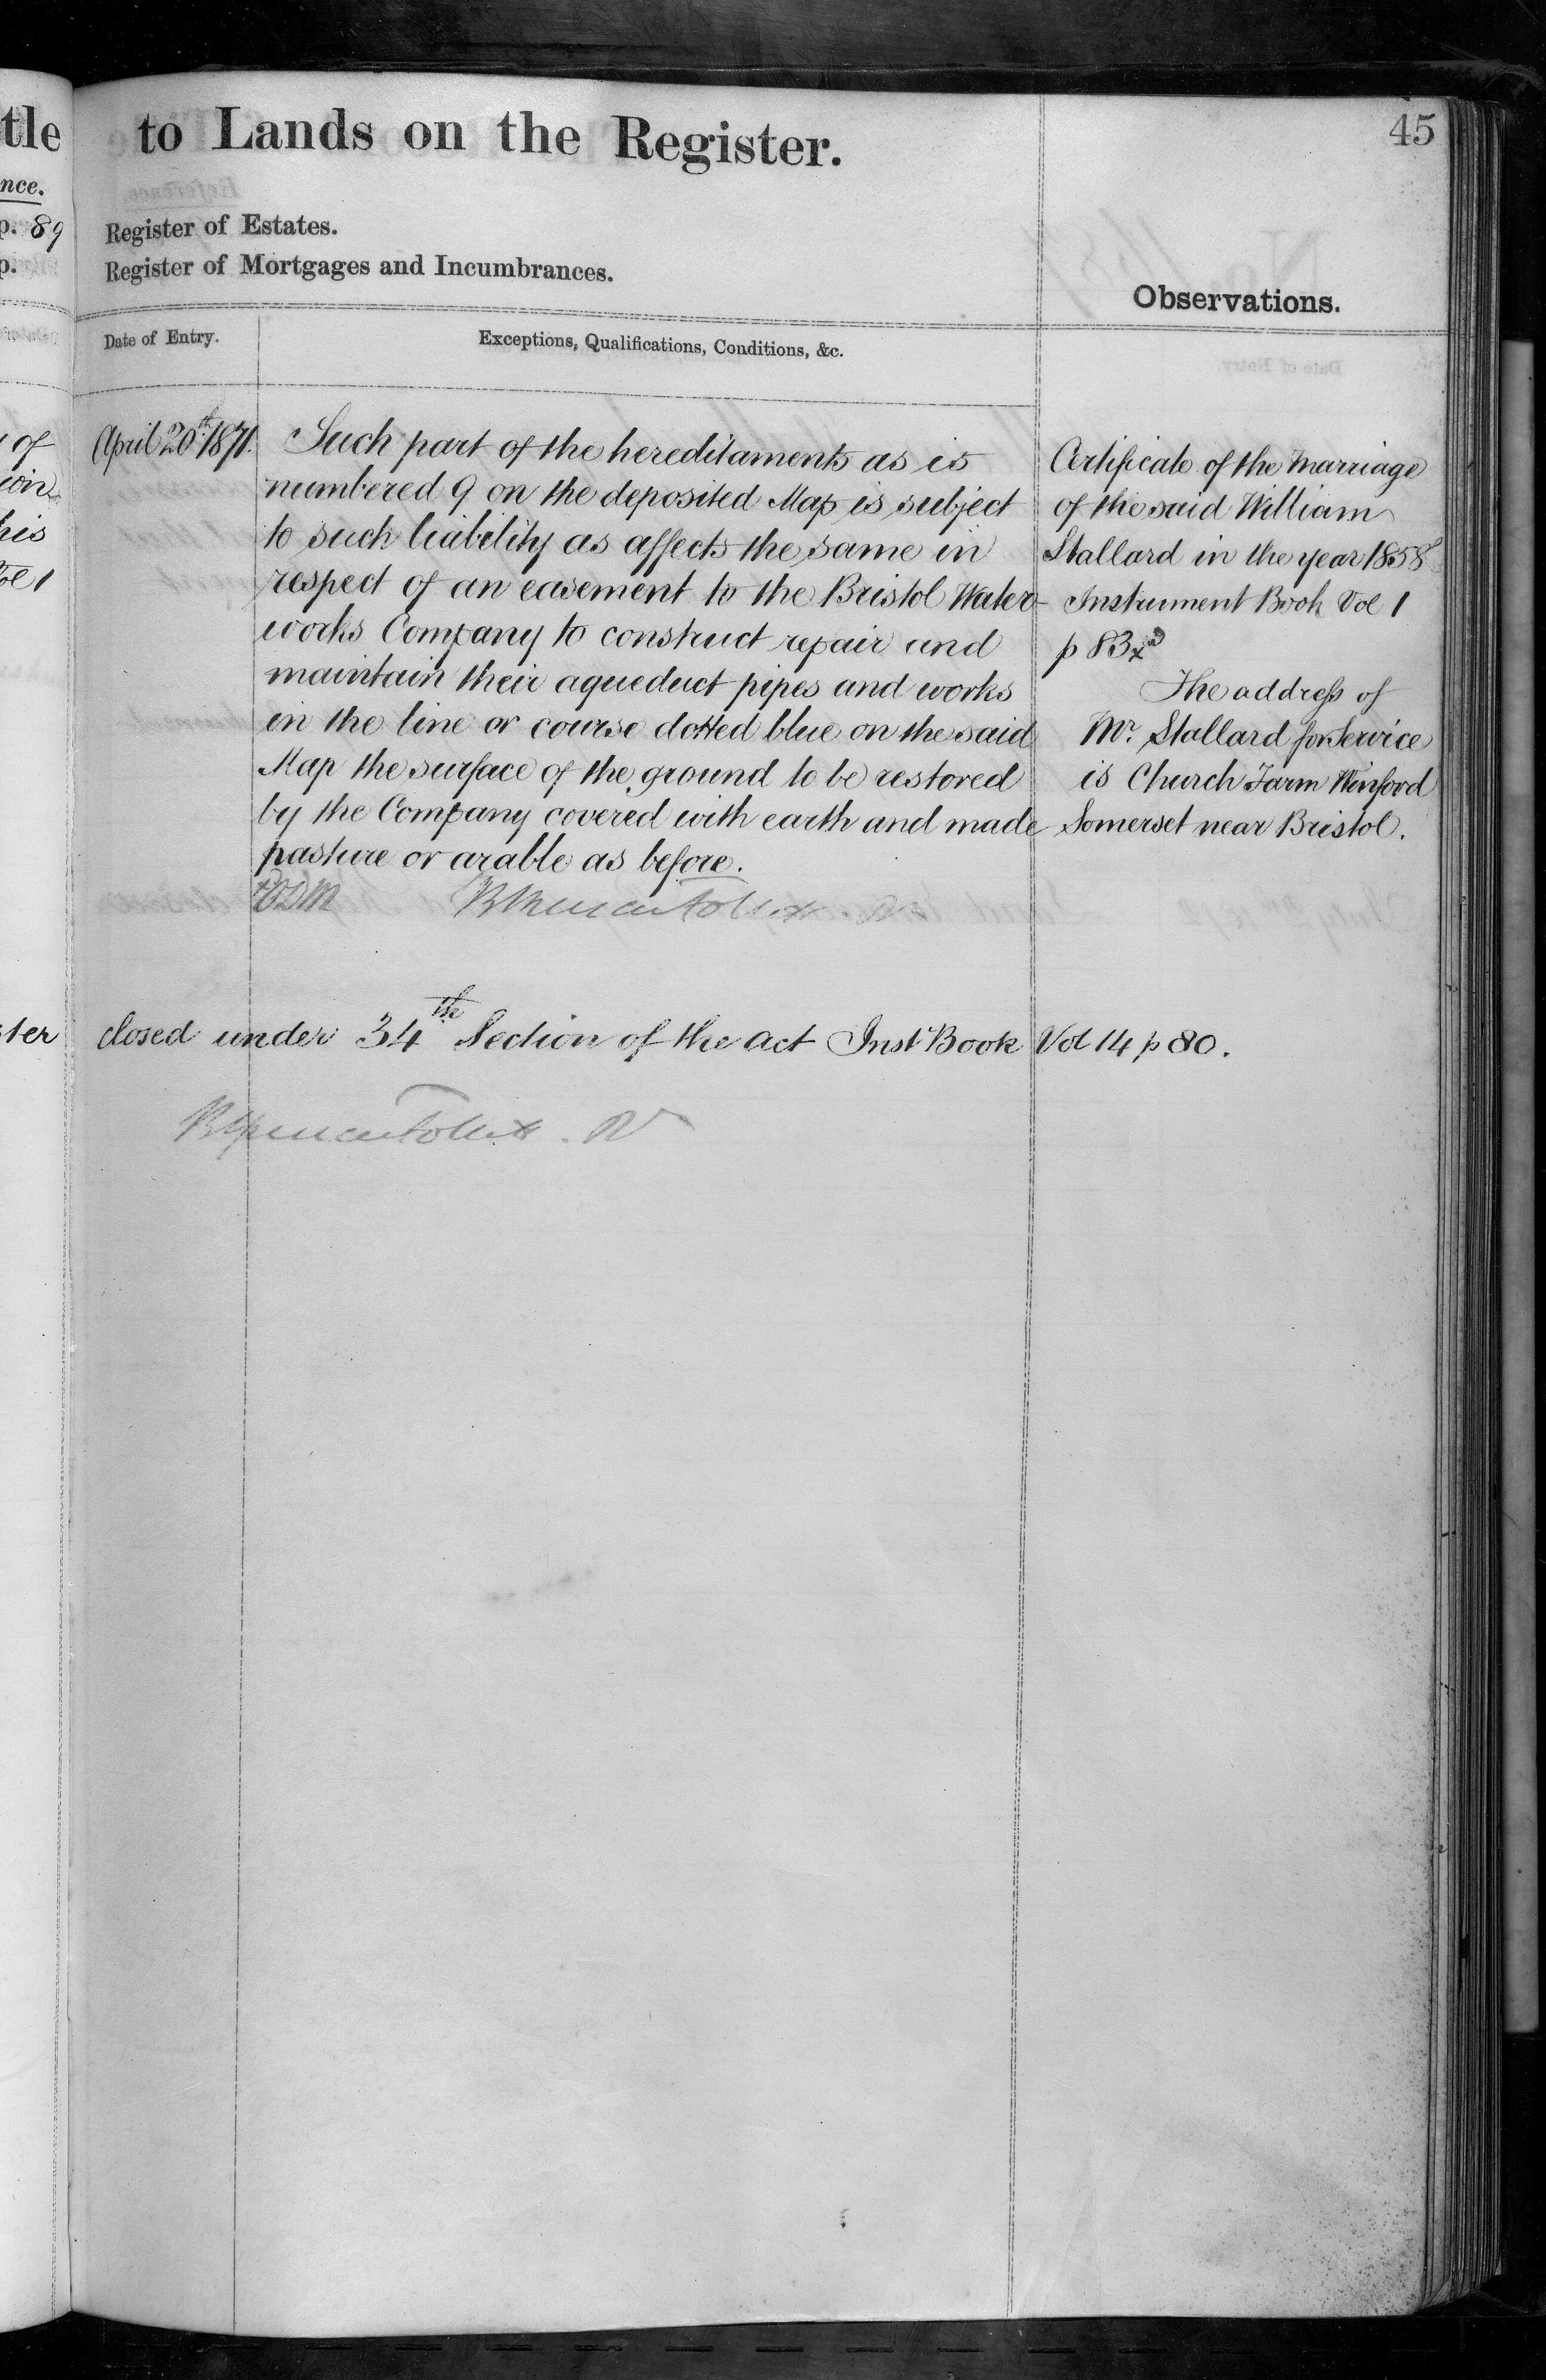 tle
nce.
p. 89
p.
of
ion
his
Vol 1
ster
to Lands on the Register.
45
Register of Estates.
Register of Mortgages and Incumbrances.
Observations.
Date of Entry.
Exceptions, Qualifications, Conditions, &c.
April 20th 1871. Such part of the hereditaments as is
numbered 9 on the deposited Map is subject
to such liability as affects the same in
respect of an easement to the Bristol Water-
works Company to construct repair and
maintain their aqueduct pipes and works
in the line or course dotted blue on the said
Map the surface of the ground to be restored
by the Company covered with earth and made
pasture or arable as before.
Certificate of the Marriage
of the said William
Stallard in the year 1858
Instrument Book Vol 1
p 83
The address of
Mr. Stallard for Service
is Church Farm Winford
Somerset near Bristol.
closed under 34th Section of the act Inst Book Vol 14 p 80.